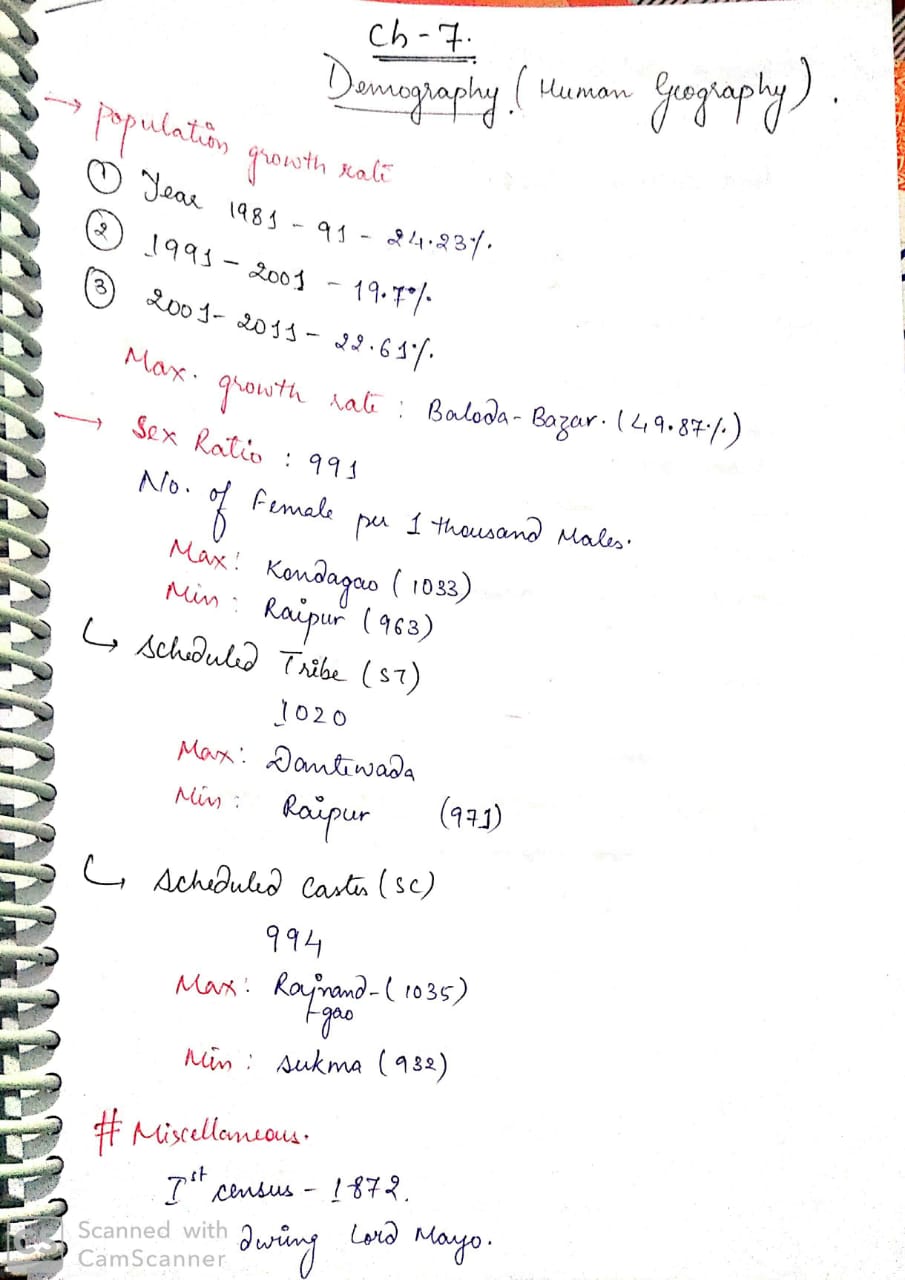 Ch-7.
Demography (Human Geography).
→ Population growth rate
① Year 1981 - 91 - 24.23%.
② 1991 - 2001 - 19.7%.
③ 2001 - 2011 - 22.61%.
Max. growth rate : Baloda-Bazar. (49.87%)
→ Sex Ratio : 991
No. of Female per 1 thousand Males.
Max: Kondagao (1033)
Min: Raipur (963)
↳ Scheduled Tribe (ST)
1020
Max: Dantewada
Min: Raipur (971)
↳ Scheduled Castes (SC)
994
Max: Rajnand-(1035)
gao
Min : Sukma (932)
# Miscellaneous.
Ist census - 1872.
during Lord Mayo.
CS Scanned with
CamScanner